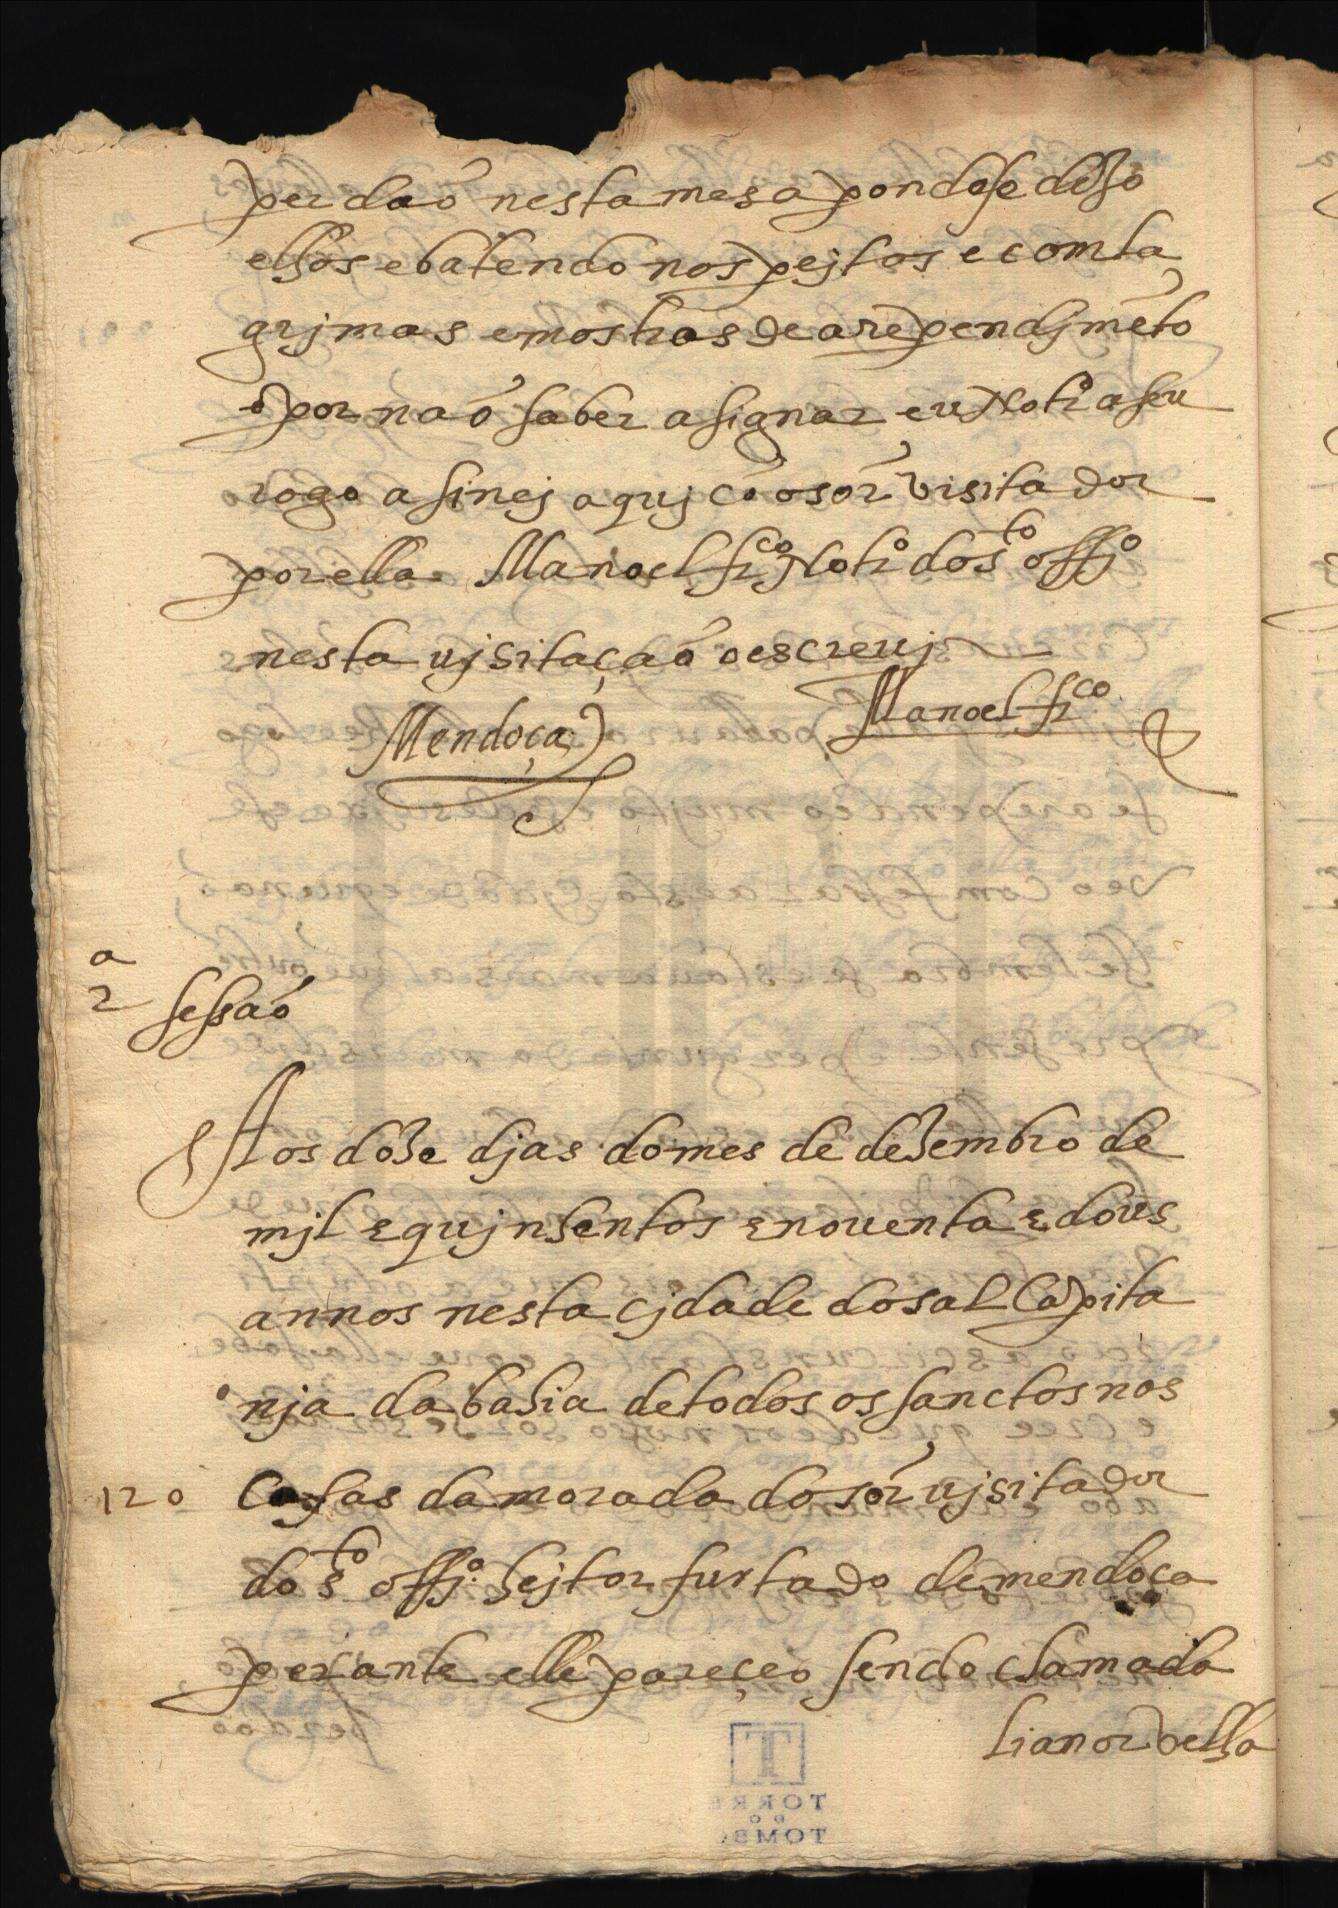 perdaõ nesta mesa pondose de Jo
elhos e batendo nos pejtos e com la
grjmas e mostras de arependjmẽto
e por naõ saber asignar eu Notro a seu
rogo asinej aquj cõ o sor visitador
por ella. Manoel frco Notro do sto offjo
nesta vjsitaçaõ o escreuj
Mendoça Manoel frco
2a sessaõ
Aos doze djas do mes de dezembro de
mjl e qujnhentos e nouenta e dous
annos nesta cjdade do saluador Capita
nja da bahia de todos os sanctos nas
120 Casas da morada do sor vjsitador
do sto offjo hejtor furtado de mendoça
perante elle pareçeo sendo chamada
Lianor velha
TORRE
DO
TOMBO